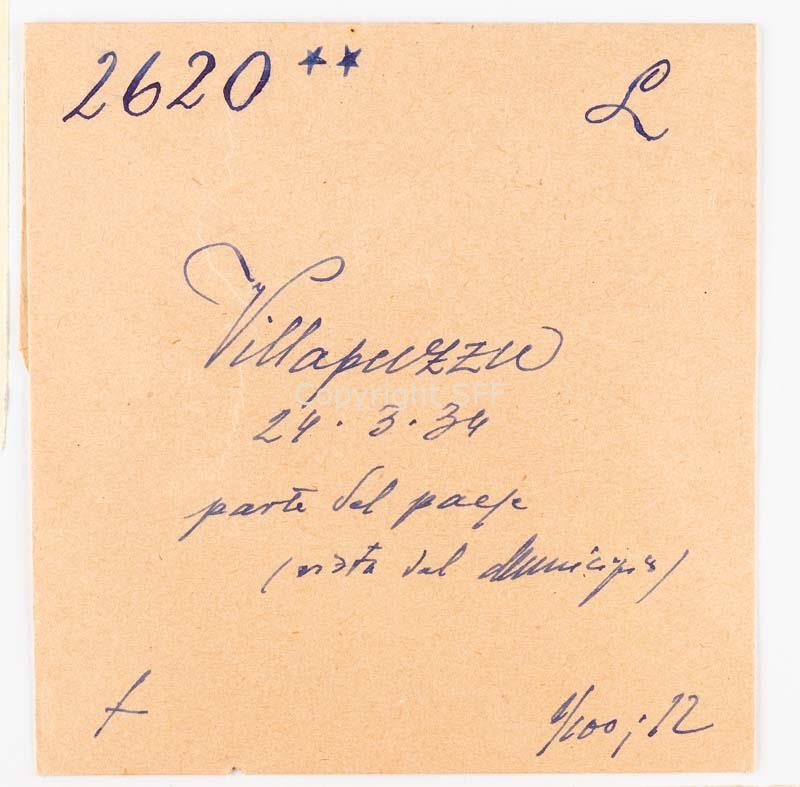 2620 ** L
Villapuzzu
Copyright SFF
24.3.34
parte del paese
(vista dal Municipio)
f
1/100; 12